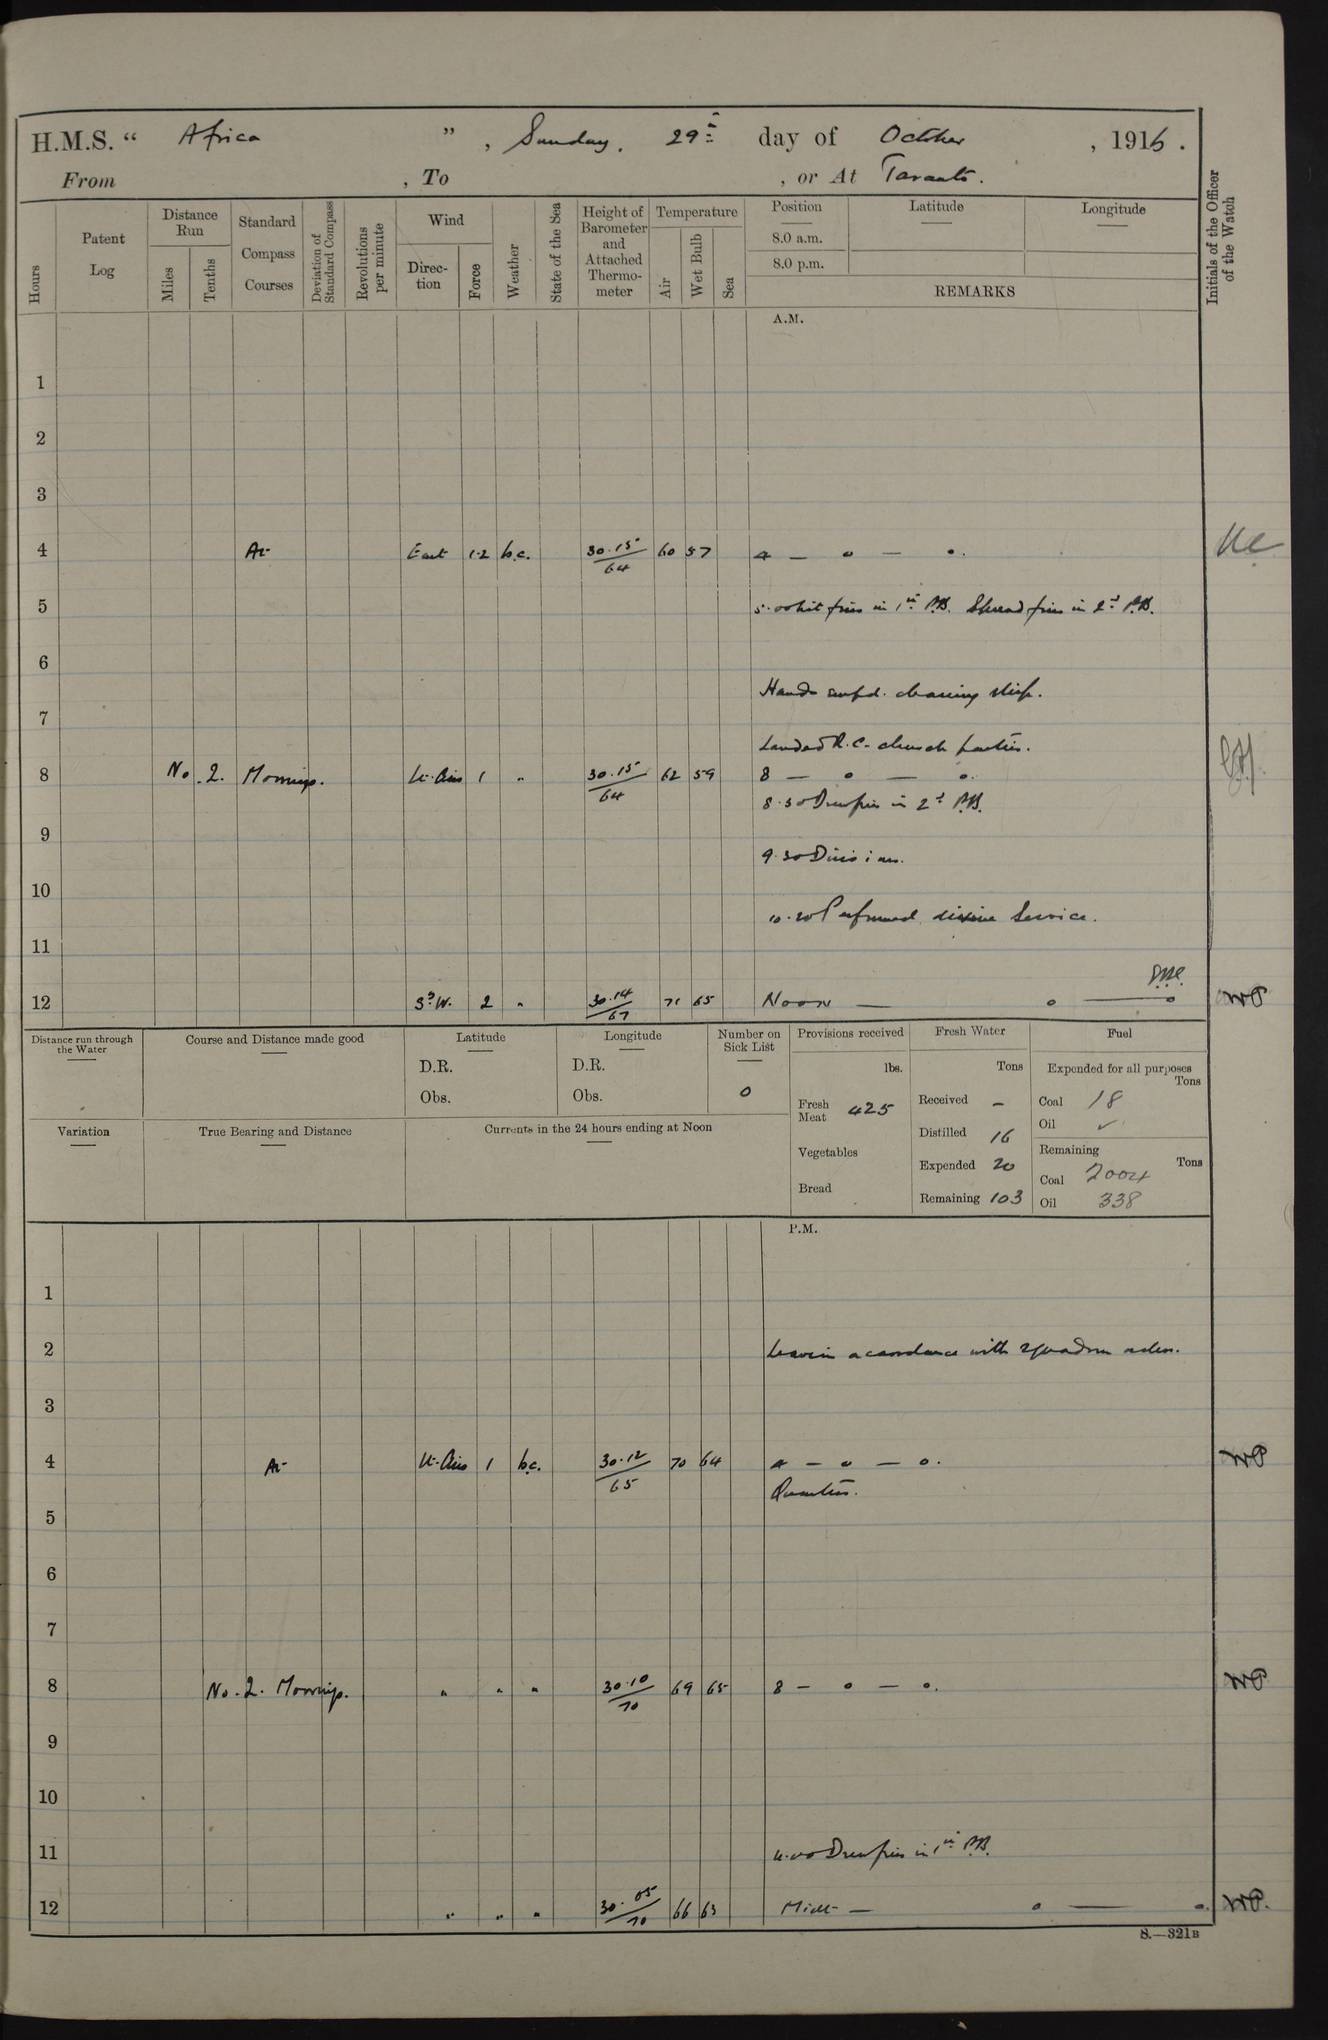 H.M.S. “ Africa ” , Sunday. 29th day of October , 1916 .
From , To , or At Taranto.
Hours
Patent Log
Distance Run
Miles
Tenths
Standard Compass Courses
Deviation of Standard Compass
Revolutions per minute
Wind
Direc-tion
Force
Weather
State of the Sea
Height of Barometer and Attached Thermo-meter
Temperature
Air
Wet Bulb
Sea
Position
8.0 a.m.
8.0 p.m.
Latitude
Longitude
REMARKS
Initials of the Officer of the Watch
A.M.
1
2
3
4 At East 1-2 b.c. 30.15/64 60 57 4 — o — o.
5 5.00 Lit fires in 1st P.B. Spread fires in 2nd P.B.
6
Hands empd. cleaning ship.
7
Landed R.C. church parties.
8 No. 2. Moorings. Lt. Airs 1 " 30.15/64 62 59 8 — o — o.
8.30 Drew fires in 2nd P.B.
9
9.30 Divisions.
10
10.20 Performed divine Service.
11
12 S.W. 2 " 30.14/67 71 65 Noon — o — o
Distance run through the Water
Course and Distance made good
Latitude
D.R.
Obs.
Longitude
D.R.
Obs.
Number on Sick List
0
Provisions received
lbs.
Fresh Meat 425
Vegetables
Bread
Fresh Water
Tons
Received –
Distilled 16
Expended 20
Remaining 103
Fuel
Expended for all purposes
Tons
Coal 18
Oil ✓
Remaining
Tons
Coal 2004
Oil 338
Variation
True Bearing and Distance
Currents in the 24 hours ending at Noon
P.M.
1
2 Leave in accordance with squadron orders.
3
4 At Lt. Airs 1 b.c. 30.12/65 70 64 4 — o — o.
Quarters.
5
6
7
8 No. 2. Moorings. " " " 30.10/70 69 65 8 — o — o.
9
10
11 11.00 Drew fires in 1st P.B.
12 " " " 30.05/70 66 63 Midt — o — o.
S.—321B